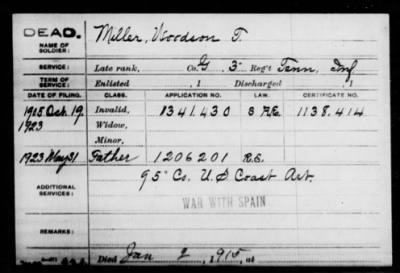 DEAD.
NAME OF SOLDIER: Miller, Woodson T.
SERVICE: Late rank, Co. G 5" Reg't Tenn. Inf
TERM OF SERVICE: Enlisted , 1 Discharged , 1
DATE OF FILING. CLASS. APPLICATION NO. LAW. CERTIFICATE NO.
1915 Oct. 19. Invalid, 1341.430 1138.414
1923 Widow,
Minor,
1923 May 31 Father 1206201
ADDITIONAL SERVICES: 95" Co. U.S Coast Art.
WAR WITH SPAIN
REMARKS:
Died Jan 2, 1915, at